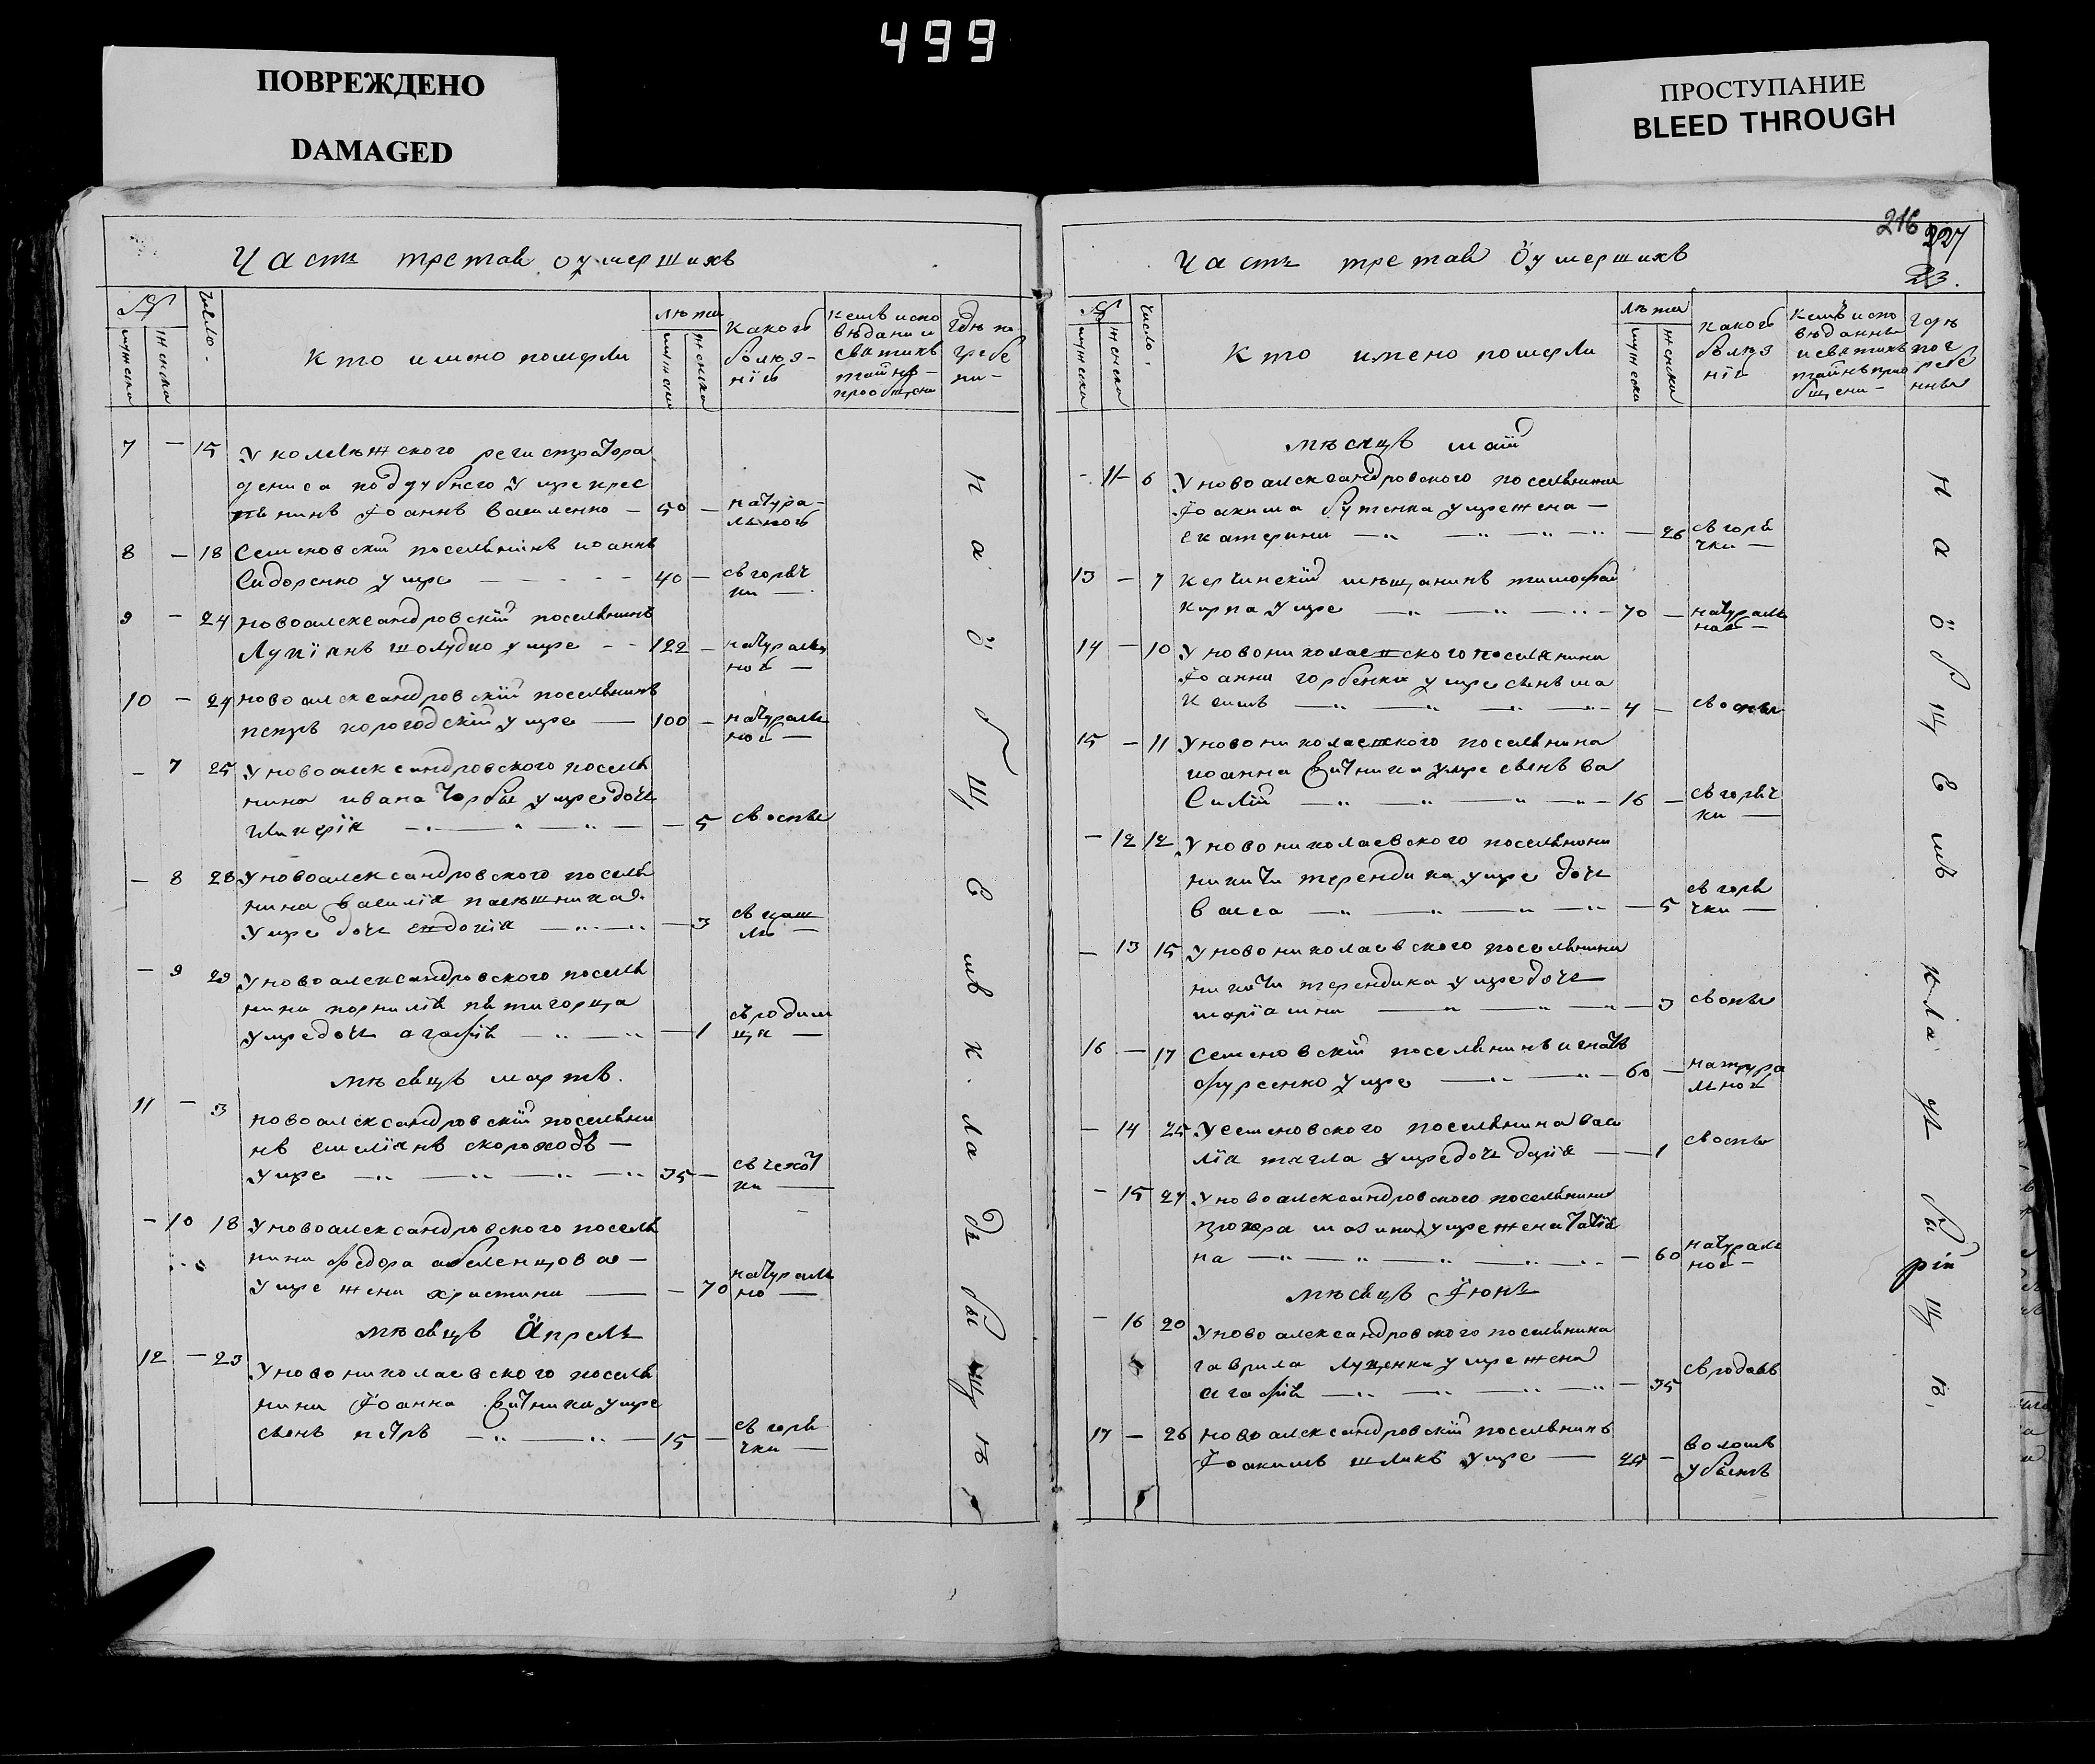 499
ПОВРЕЖДЕНО
DAMAGED
ПРОСТУПАНИЕ
BLEED THROUGH
Часть третая оумершихъ
№
мужеска
женска
число
Кто имено померли
лѣта
мужеска
женска
какой
болѣз-
нїи
Кемъ испо
вѣдани и
святихъ
тайнъ
прообщени
Гдѣ по
гребе
ни-
7 – 15 У колѣжского регистратора
дениса поддубнего умре крес
тянинъ Їоаннъ василенко – 50 – натура-
льной
8 – 18 Семеновский поселянинъ иоаннъ
Сидоренко умре – 40 – съ горяч
ки –
9 – 24 новоалександровскїй поселянинъ
Лупїанъ шолудко умре – 122 – натураль
ной –
10 – 24 новоалександровскїй поселянинъ
петръ корогодскїй умре – 100 – натураль
ной –
– 7 25 У новоалександровского поселя
нина ивана Чорбы умре дочь
гликерїя – 5 съ оспы
– 8 28 У новоалександровского поселя
нина василїя пасѣшника
умре дочь евдокїя – 3 съ каш
лю –
– 9 29 У новоалександровского поселя
нина корнилїя пятигорца
умре дочь агафїя – 1 съ родим
ця –
мѣсяцъ мартъ.
11 – 3 новоалександровскїй поселяни
нъ емелїанъ скороходъ –
умре – 35 – съ чехот
ки –
– 10 18 У новоалександровского поселя
нина федора
умре жена христина – 70 натураль
но –
мѣсяцъ Апрель
12 – 23 У новониколаевского поселя
нина Їоанна Витника умре
сынъ петръ – 15 – съ горя
чки –
на общемъ кладбищѣ
216
227
23.
Часть третая оумершихъ
№
мужеска
женска
число
Кто имено померли
лѣта
мужеска
женска
какой
болѣз
нїи
Кемъ испо
вѣданны
и святихъ
тайнъ прио
бщени-
Гдѣ
пог
ребе
нны
мѣсяцъ май
– 11 – 6 У новоалександровского поселянина
Їоакима бутенка умре жена –
екатерина – 26 съ горя
чки –
13 – 7 Керчинскїй мѣщанинъ тимофей
кирпа умре – 70 – натураль
ной –
14 – 10 У новониколаевского поселянина
Їоанна горбенка умре сынъ ма
ксимъ – 4 – съ оспы
15 – 11 У новониколаевского поселянина
иоанна Витника умре сынъ ва
силїй – 16 – съ горяч
ки –
– 12 12 У новониколаевского поселянина
никити терендика умре дочь
васса – 5 съ горя
чки –
– 13 15 У новониколаевского поселянина
никити терендика умре дочь
марїамна – 3 съ оспы
16 – 17 Семеновскїй поселянинъ игнатъ
фурсенко умре – 60 – натура
льной
– 14 25 У семеновского поселянина васи
лїя тягла умре дочь дарїя – 1 съ оспы
– 15 27 У новоалександровского поселянина
прохора мазина умре жена татїя
на – 60 натураль
ной –
мѣсяцъ Їюнь
– 16 20 У новоалександровского поселянина
гаврила луценка умре жена
агафїя – 35 съ родовъ
17 – 26 новоалександровскїй поселянинъ
Їоакимъ шликъ умре – 25 – воломъ
убытъ
на общемъ кладбищѣ